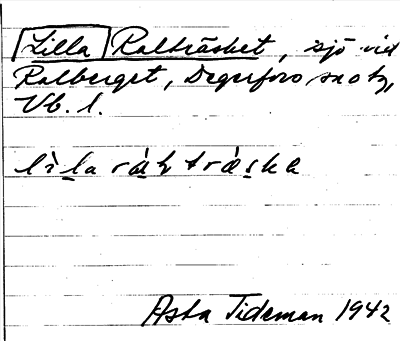 Lilla Ralträsket, sjö vid
Ralberget, Degerfors sn o tg,
Vb. l.
Asta Tideman 1942